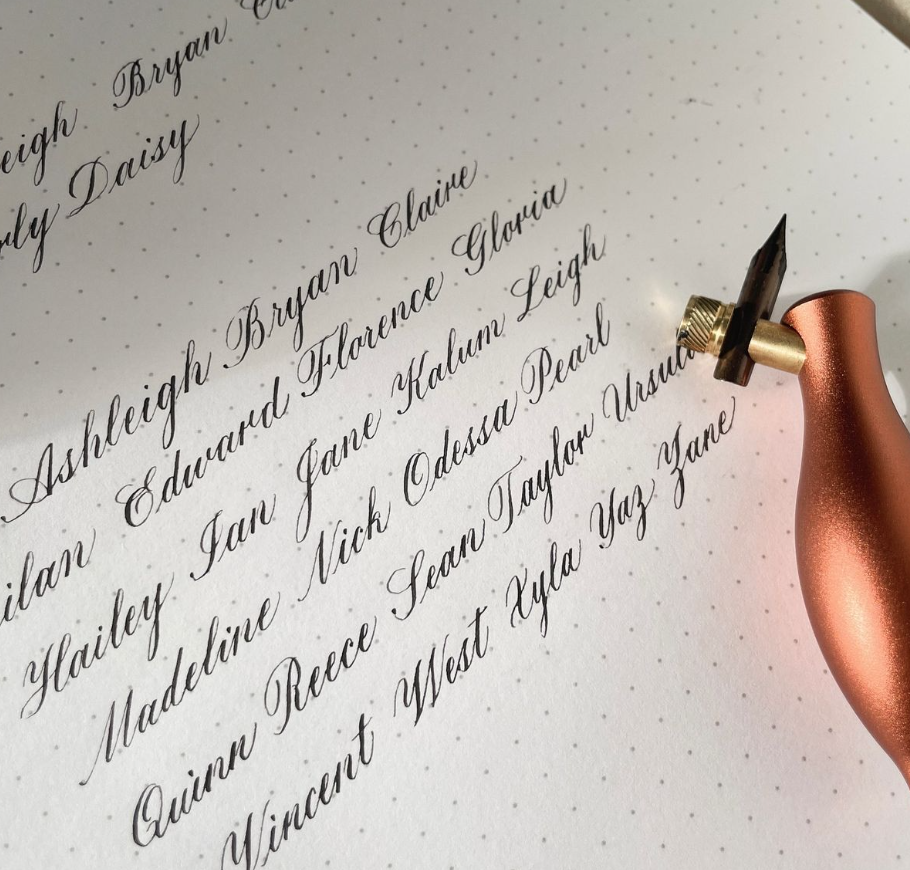 Bryan
Daisy
Ashleigh Bryan Claire
Edward Florence Gloria
Hailey Ian Jane Kalum Leigh
Madeline Nick Odessa Pearl
Quinn Reece Sean Taylor
Vincent West Xyla Yaz Zane